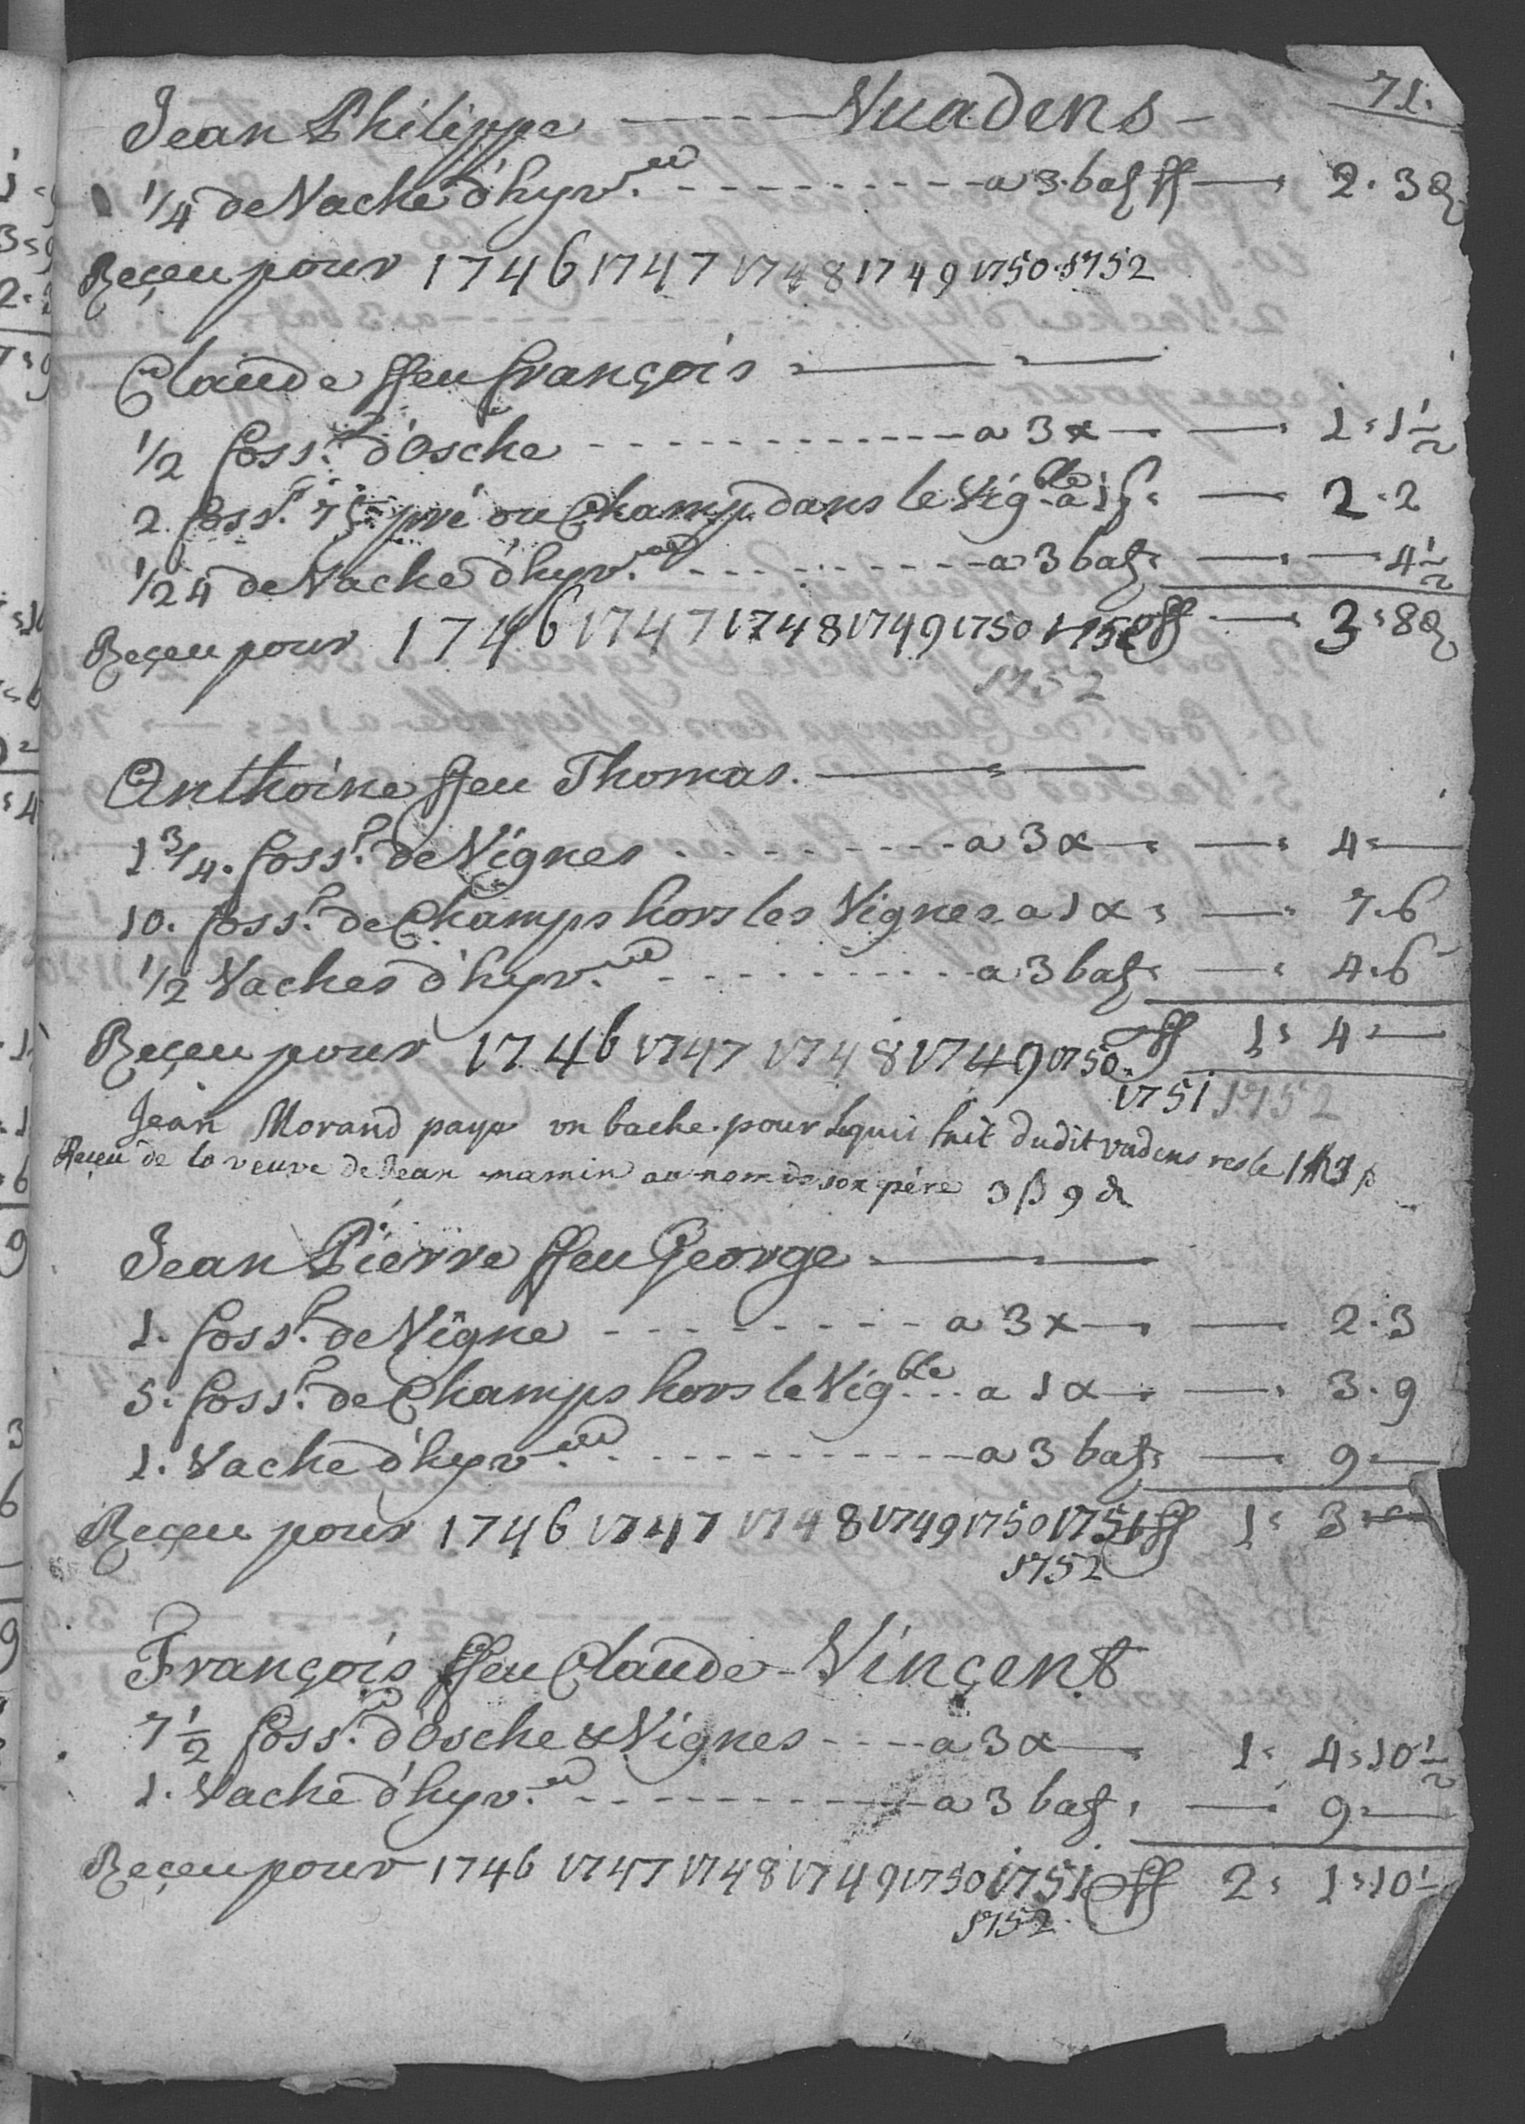 71.
Jean Philippe — Vuadens —
1/4 de Vache d'hyv. a 3 batz ff — 2 . 3 d
Reçeu pour 1746 1747 1748 1749 1750 . 1752
Claude ffeu françois
1/2 foss.r d'Osche a 3 x — 1 . 1 1/2
2 foss.r pré ou Champ dans le Vig.ble a 1 — 2 . 2
1/24 de Vache d'hyv. a 3 batz — 4 1/2
Reçeu pour 1746 1747 1748 1749 1750 ff — 3 . 8 d
1752
Anthoine ffeu Thomas.
1 3/4. foss.r de Vignes a 3 x — 4 —
10. foss.r de Champs hors les Vignes a 1 x — 7 . 6
1/2 Vaches d'hyv. a 3 batz — 4 . 6
Reçeu pour 1746 1747 1748 1749 1750. ff 1 . 4 —
1751 1752
Jean Morand paye un bache pour dudit vadens reste
Reçeu de la veuve de Jean mamin au nom de son pére 3 ß 9 d
Jean Pierre ffeu George
1. foss.r de Vigne a 3 x — 2 . 3
5. foss.r de Champs hors le Vig.ble a 1 x — 3 . 9
1. Vache d'hyv. a 3 batz — 9 —
Reçeu pour 1746 1747 1748 1749 1750 1751 ff 1 . 3 —
1752
François ffeu Claude - Vinçent
7 1/2 foss.r d'Osche & Vignes a 3 x — 1 . 4 . 10 1/2
1. Vache d'hyv. a 3 batz — 9 —
Reçeu pour 1746 1747 1748 1749 1750 1751 ff 2 . 1 . 10 1/
1752.